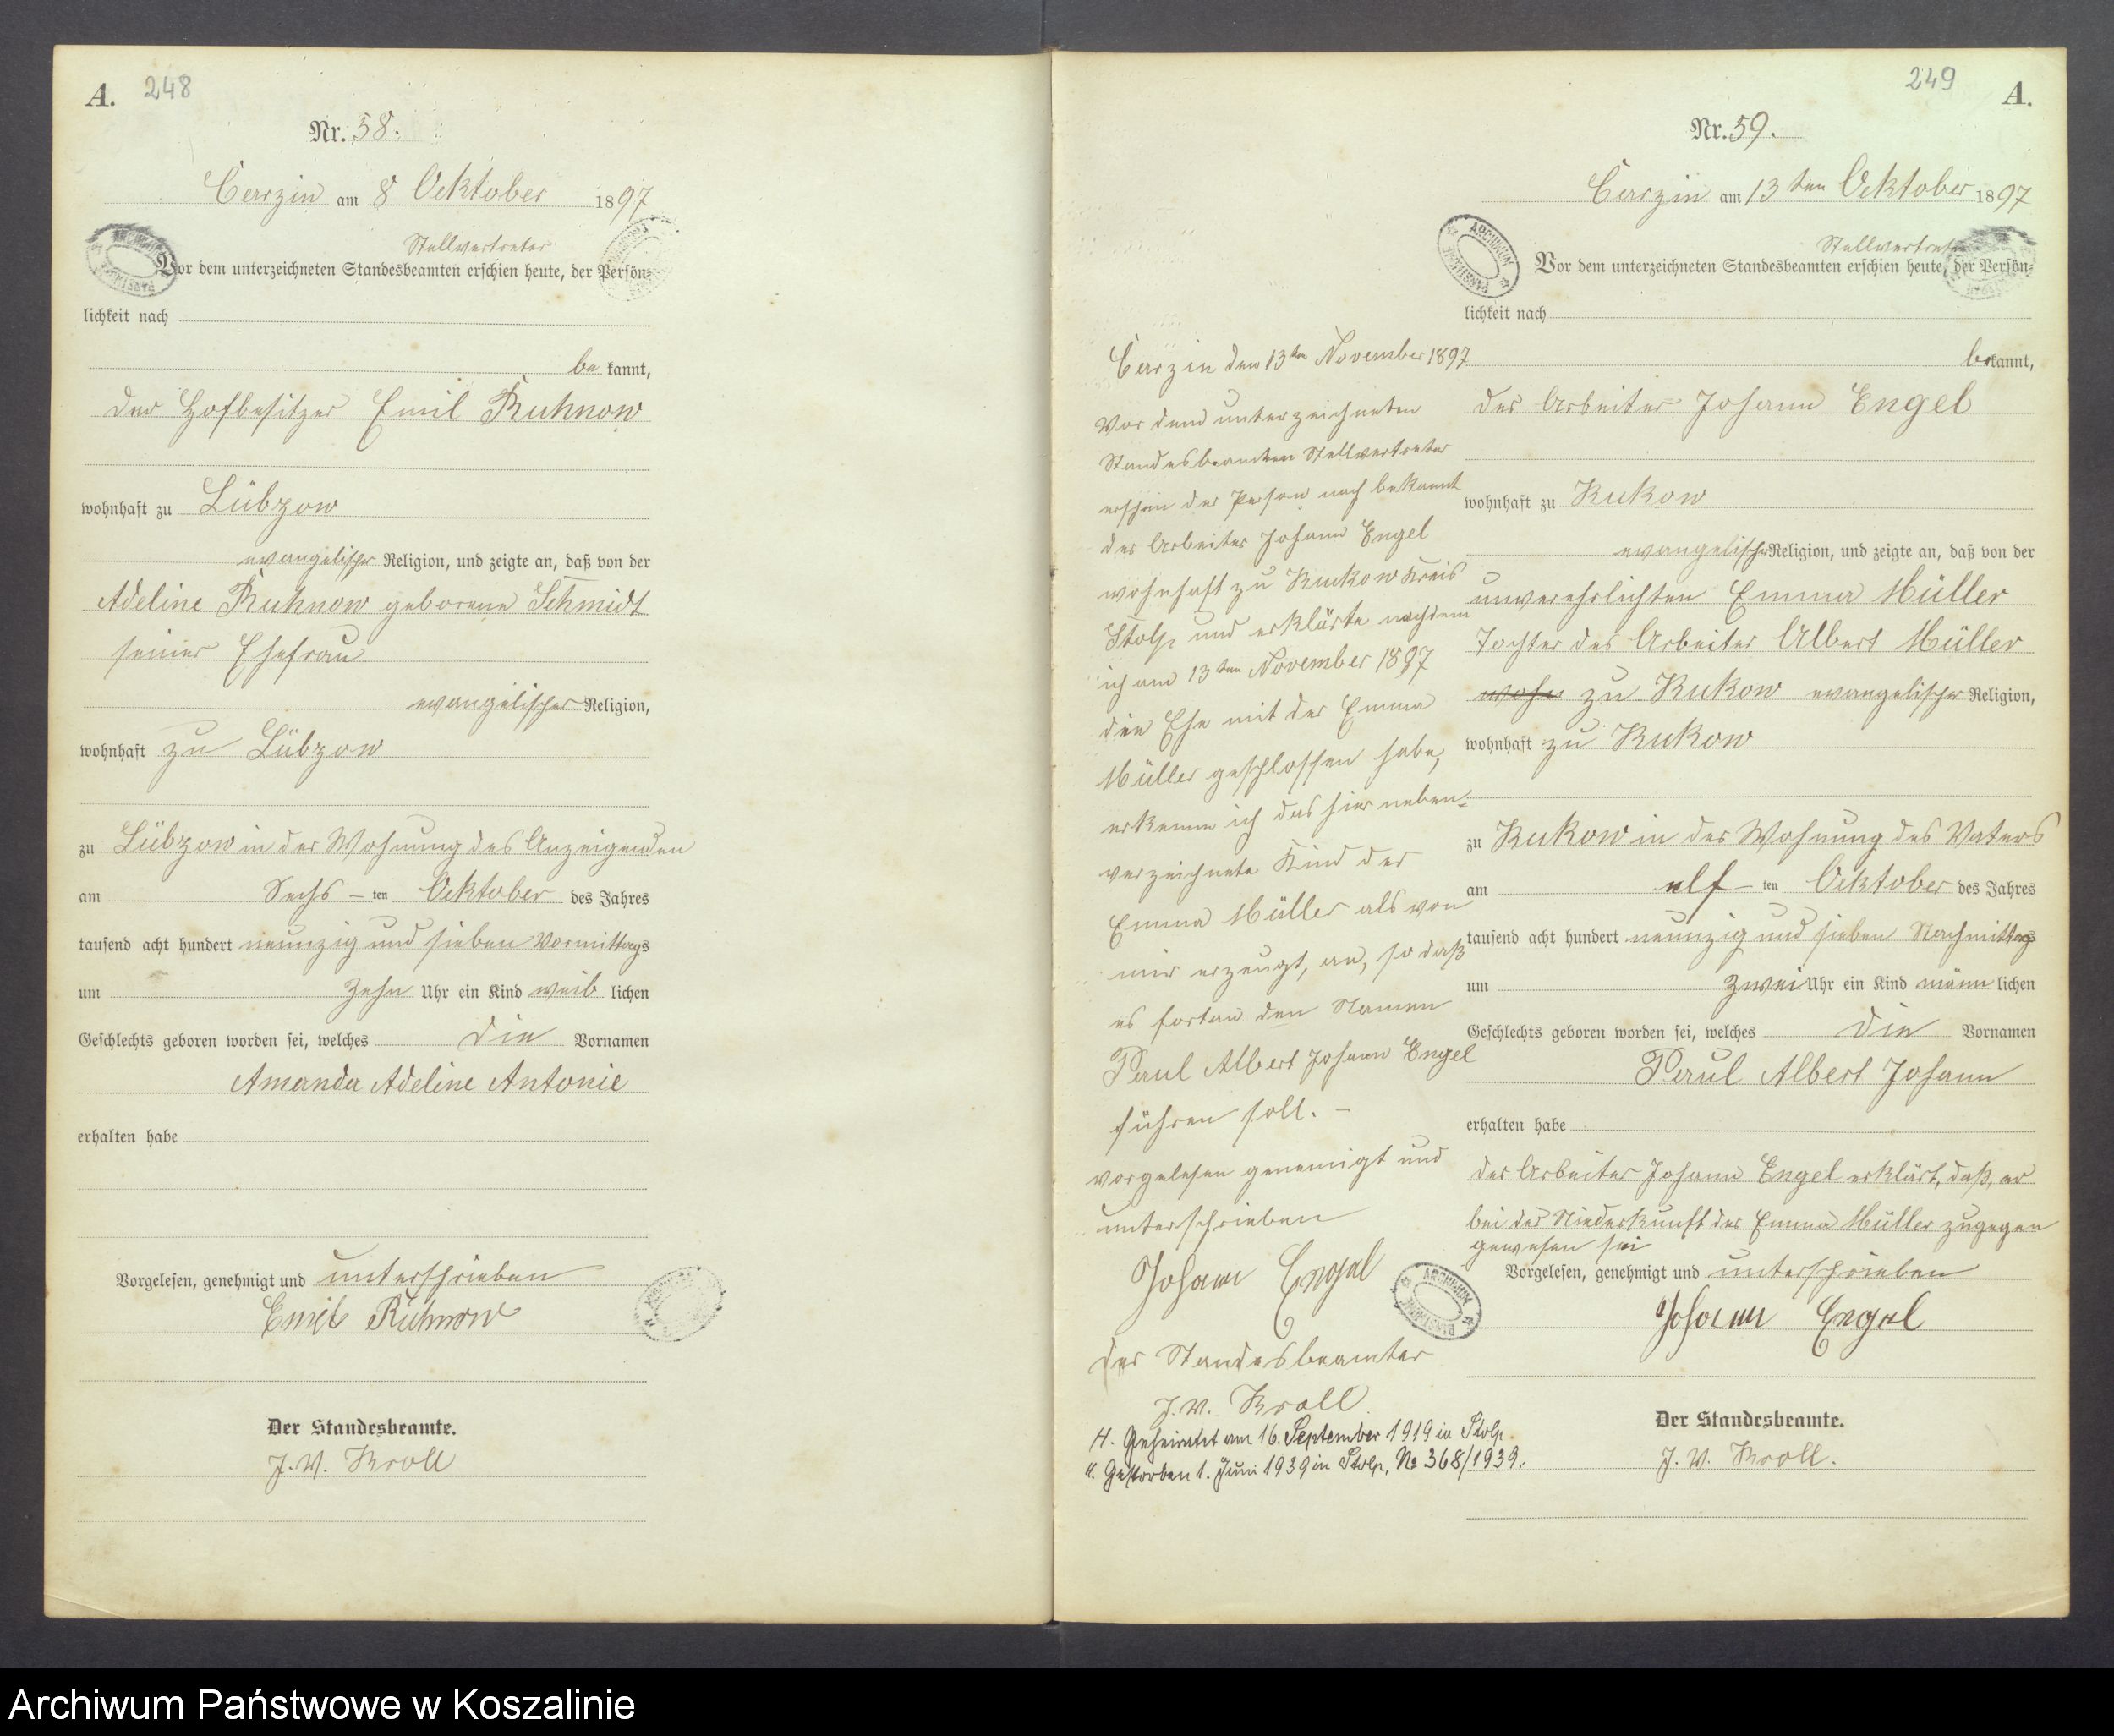 A. 248
Nr. 58.
Carzin am 8 Oektober 1897
Stellvertreter
Vor dem unterzeichneten Standesbeamten erschien heute, der Persön-
lichkeit nach
be kannt,
der Hofbesitzer Emil Kuhnow
wohnhaft zu Lübzow
evangelischer Religion, und zeigte an, daß von der
Adeline Kuhnow geborene Schmidt
seiner Ehefrau
evangelischer Religion,
wohnhaft zu Lübzow
zu Lübzow in der Wohnung des Anzeigenden
am Sechs – ten Oektober des Jahres
tausend acht hundert neunzig und sieben Vormittags
um zehn Uhr ein Kind weib lichen
Geschlechts geboren worden sei, welches die Vornamen
Amanda Adeline Antonie
erhalten habe
Vorgelesen, genehmigt und unterschrieben
Emil Kuhnow
Der Standesbeamte.
J. V. Kroll
249 A.
Nr. 59.
Carzin am 13 ten Oektober 1897
Stellvertreter
Vor dem unterzeichneten Standesbeamten erschien heute, der Persön-
lichkeit nach
bekannt,
der Arbeiter Johann Engel
wohnhaft zu Kukow
evangelischer Religion, und zeigte an, daß von der
unverehrlichten Emma Müller
Tochter des Arbeiter Albert Müller
wohn zu Kukow evangelischer Religion,
wohnhaft zu Kukow
zu Kukow in der Wohnung des Vaters
am elf – ten Oektober des Jahres
tausend acht hundert neunzig und sieben Nachmittags
um zwei Uhr ein Kind männ lichen
Geschlechts geboren worden sei, welches die Vornamen
Paul Albert Johann
erhalten habe
der Arbeiter Johann Engel erklärt, daß, er
bei der Niederkunft der Emma Müller zugegen
gewesen sei
Vorgelesen, genehmigt und unterschrieben
Johann Engel
Der Standesbeamte.
J. V. Kroll.
Carzin den 13ten November 1897
Vor dem unterzeichneten
Standesbeamten Stellvertreter
erschien der Person nach bekannt
der Arbeiter Johann Engel
wohnhaft zu Kukow Kreis
Stolp und erklärte nachdem
ich am 13 ten November 1897
die Ehe mit der Emma
Müller geschlossen habe,
erkenne ich das hier neben-
verzeichnete Kind der
Emma Müller als von
mir erzeugt, an, so daß
es fortan den Namen
Paul Albert Johann Engel
führen soll. –
vorgelesen genemigt und
unterschrieben
Johann Engel
der Standesbeamter
J. V. Kroll
H. Geheiratet am 16. September 1919 in Stolp.
Gestorben 1. Juni 1939 in Stolp, No 368/1939.
ARCHIWUM PAŃSTWOWE
Archiwum Państwowe w Koszalinie